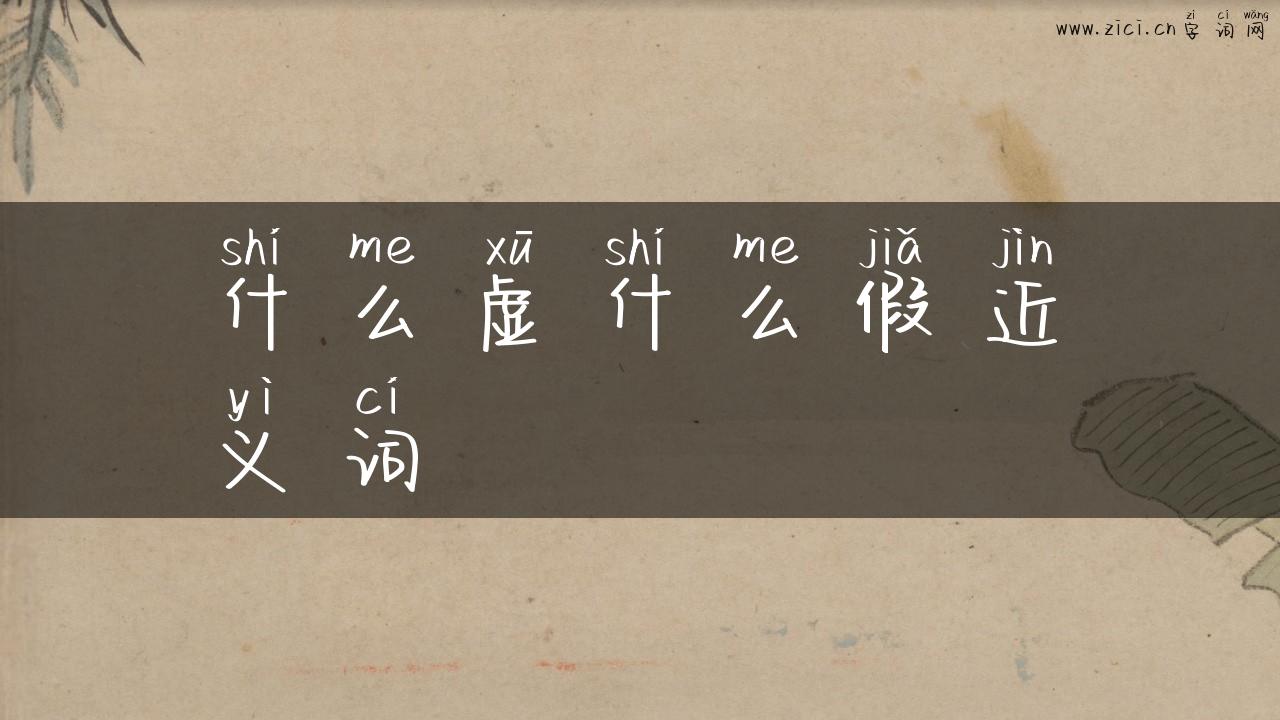 zì cí wǎng
www.zici.cn 字词网
shí me xū shí me jiǎ jìn
什么虚什么假近
yì cí
义词